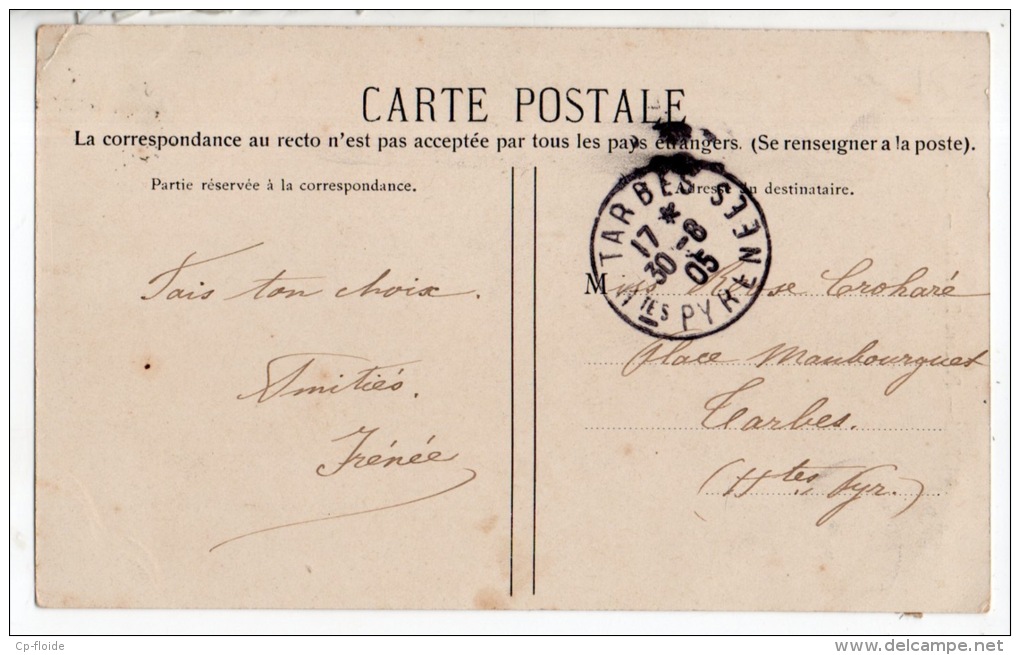 CARTE POSTALE
La correspondance au recto n'est pas acceptée par tous les pays étrangers. (Se renseigner a la poste).
Partie réservée à la correspondance.
Fais ton choix.
Amitiés.
Irénée
Adresse du destinataire.
TARBES
17 - 8
30 05
Htes PYRENEES
Miss Croharé
Place Maubourguet
Tarbes.
(Htes Pyr.)
Cp-floide
www.delcampe.net